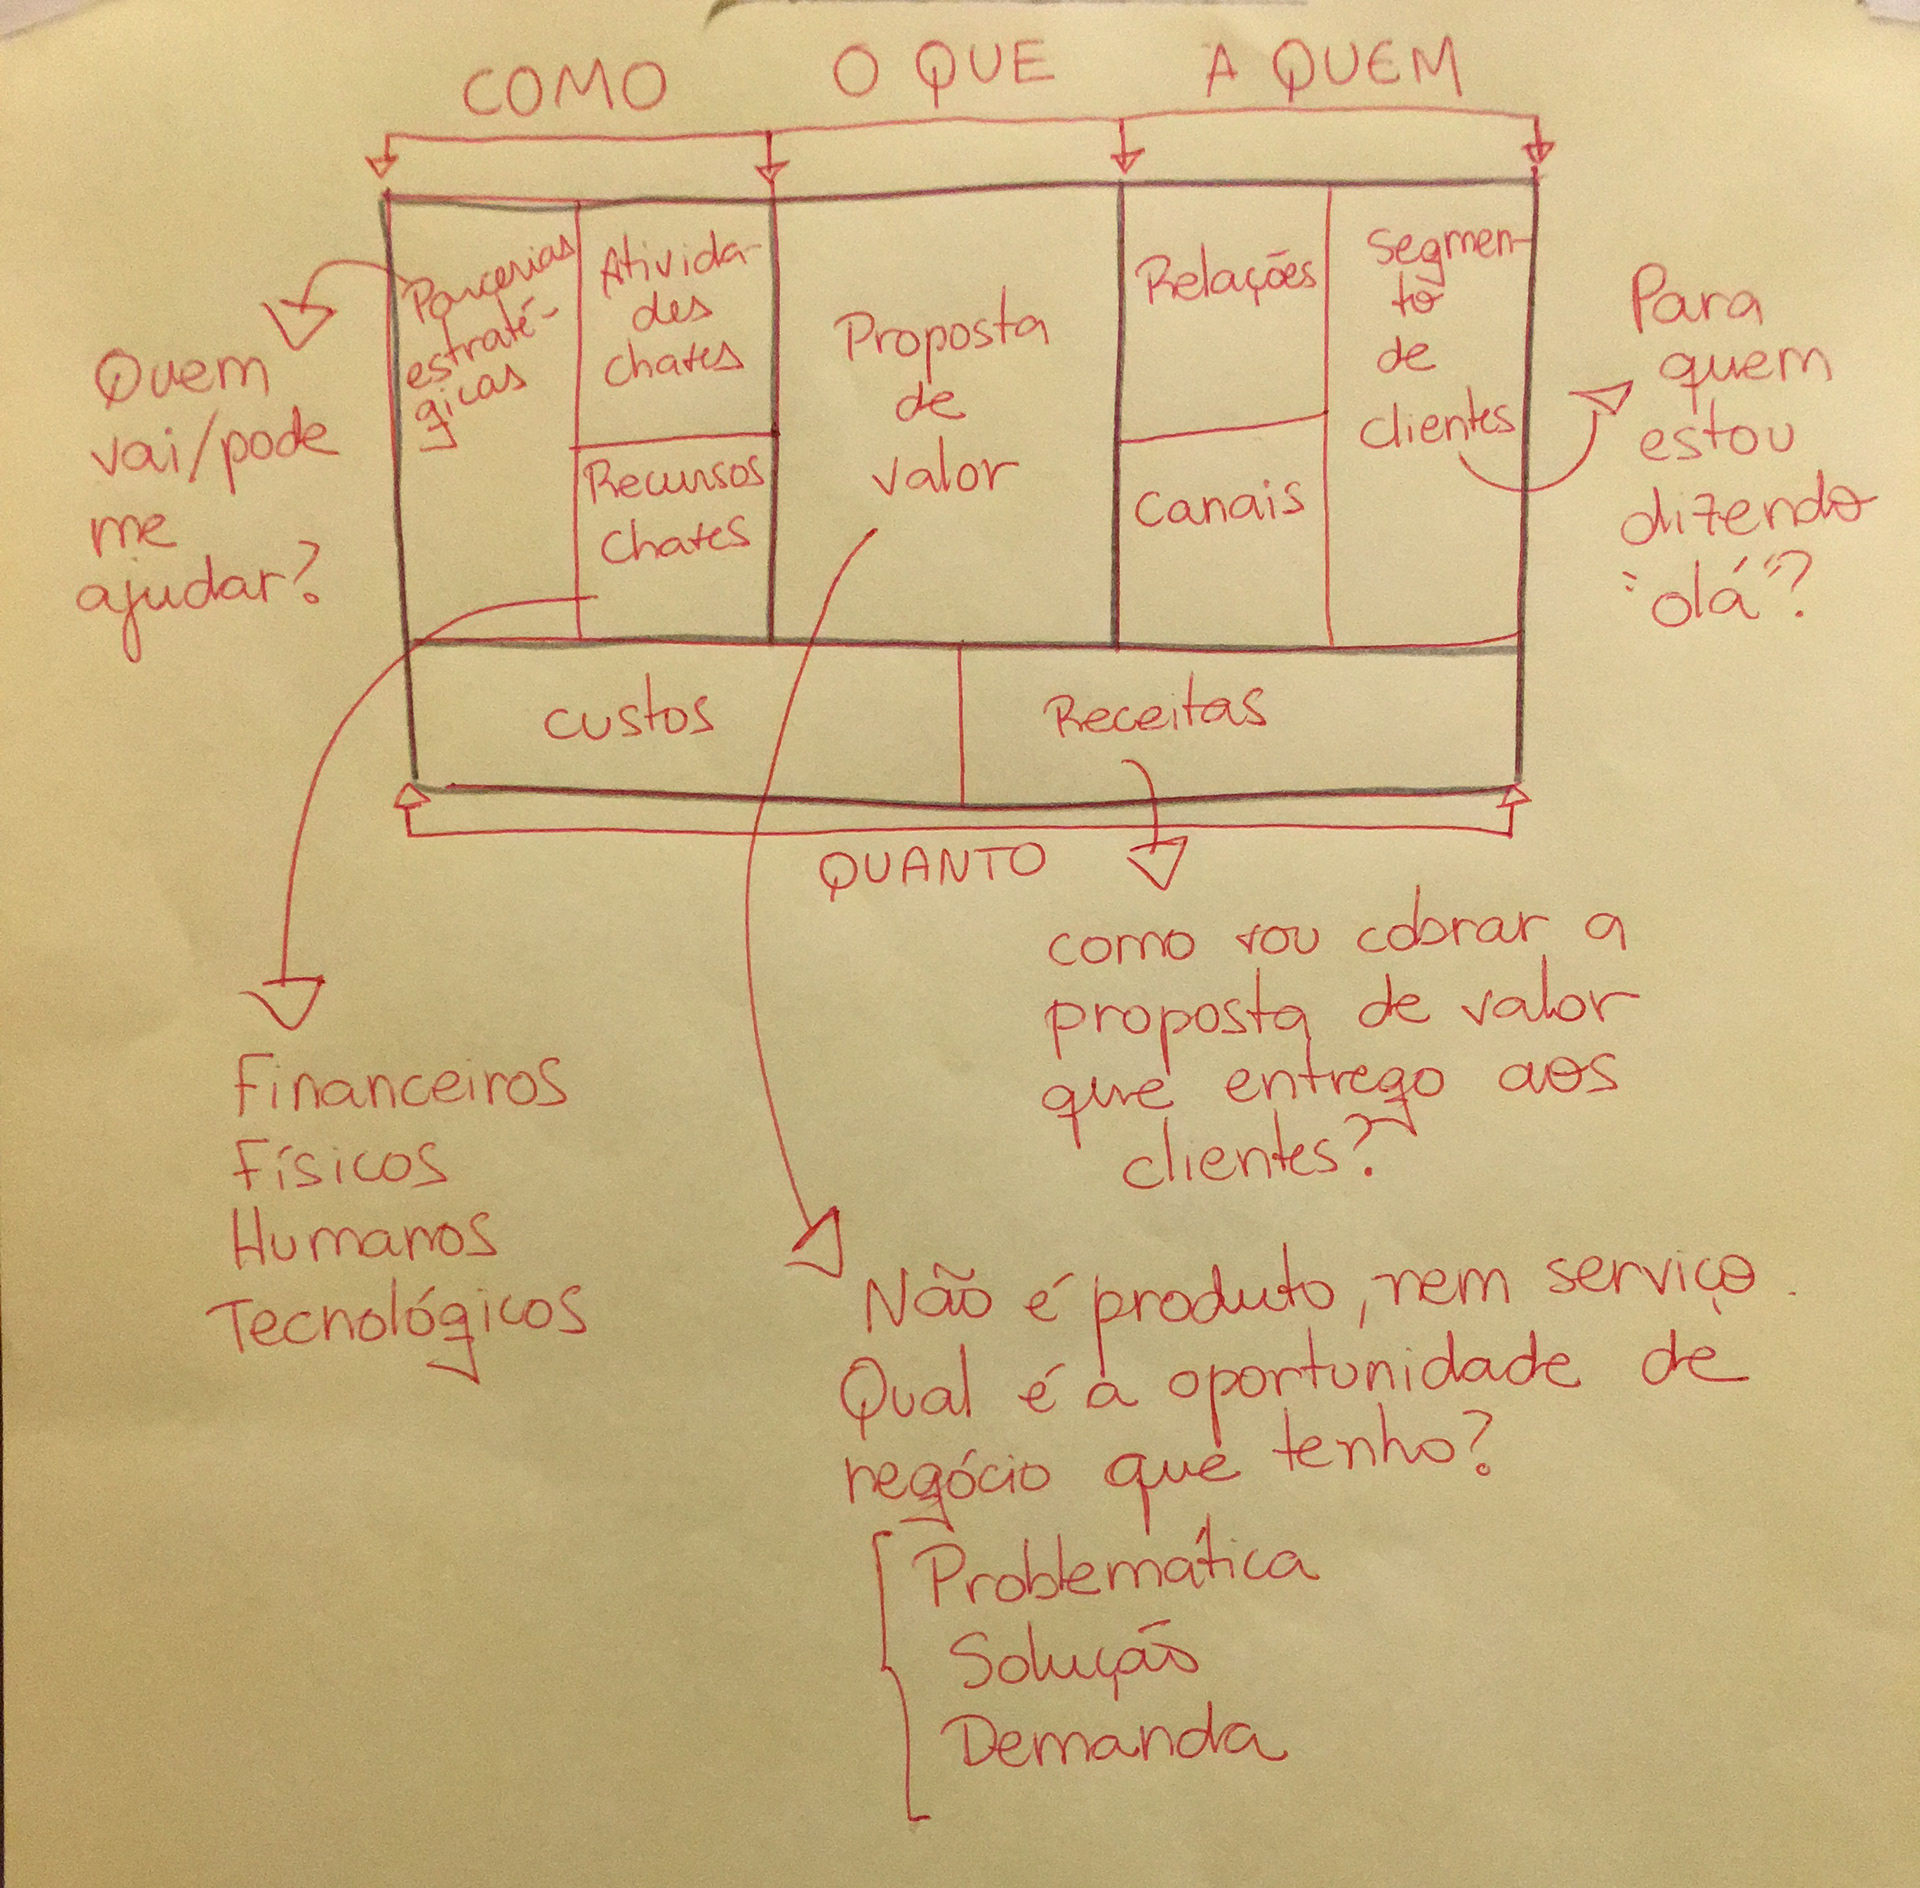 COMO
O QUE
A QUEM
Parcerias
estraté-
gicas
Ativida-
des
chaves
Recursos
chaves
Proposta
de
valor
Relações
Canais
Segmen-
to
de
clientes
Quem
vai/pode
me
ajudar?
Para
quem
estou
dizendo
"olá"?
custos
Receitas
QUANTO
como vou cobrar a
proposta de valor
que entrego aos
clientes?
Financeiros
Físicos
Humanos
Tecnológicos
Não é produto, nem serviço.
Qual é a oportunidade de
negócio que tenho?
Problemática
Solução
Demanda